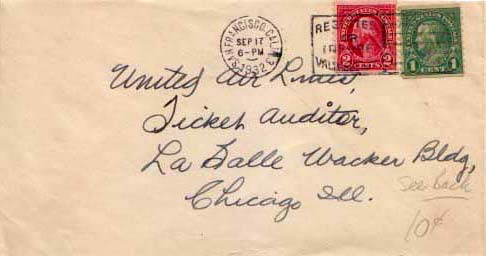 SAN FRANCISCO, CALIF.
SEP 17
6-PM
1932
UNITED STATES POSTAGE
2 CENTS 2
1 CENT 1
United Air Lines,
Ticket Auditor,
La Salle Wacker Bldg,
Chicago Ill.
See Back
10¢